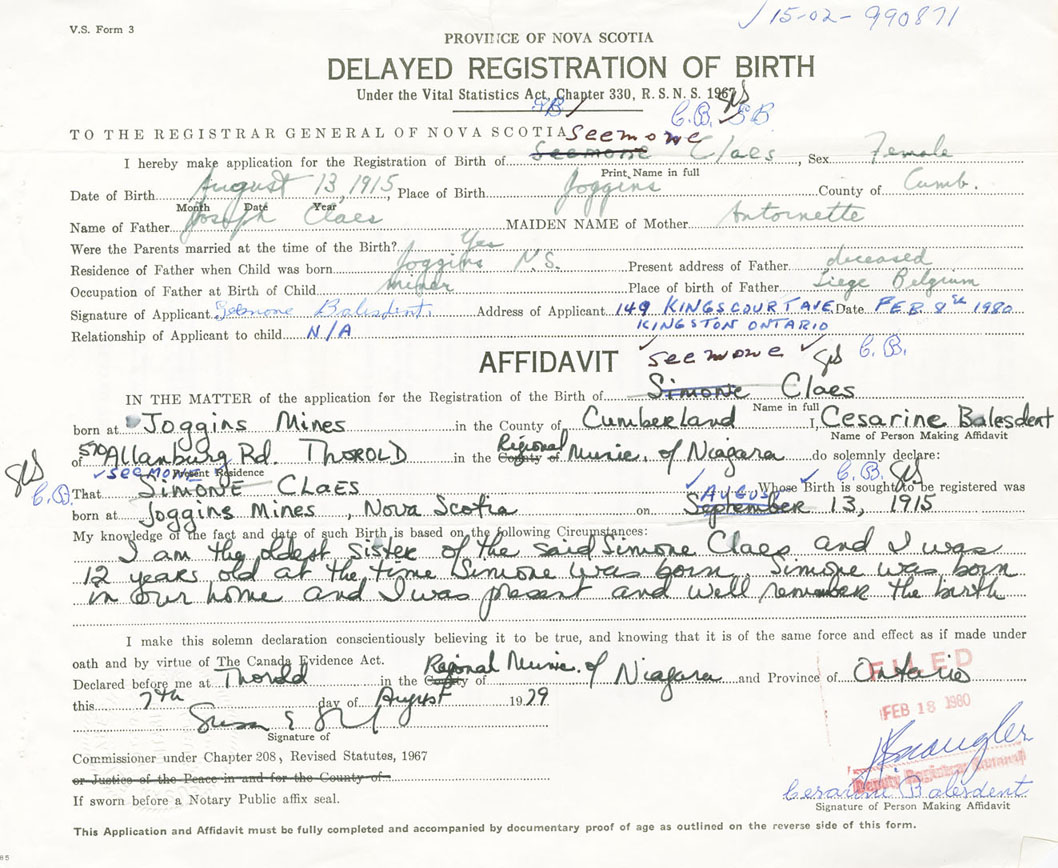 V.S. Form 3
15-02-990871
PROVINCE OF NOVA SCOTIA
DELAYED REGISTRATION OF BIRTH
Under the Vital Statistics Act, Chapter 330, R.S.N.S. 1967
SB C.B. SB
TO THE REGISTRAR GENERAL OF NOVA SCOTIA Seemone
I hereby make application for the Registration of Birth of Seemone Claes, Sex Female
Print Name in full
Date of Birth August 13, 1915, Place of Birth Joggins County of Cumb.
Month Date Year
Name of Father Joseph Claes MAIDEN NAME of Mother Antoinette
Were the Parents married at the time of the Birth? Yes
Residence of Father when Child was born Joggins N.S. Present address of Father deceased
Occupation of Father at Birth of Child miner Place of birth of Father Liege Belgium
Signature of Applicant Seemone Balesdent Address of Applicant 149 KINGSCOURT AVE Date FEB 8th 1980
Relationship of Applicant to child N/A KINGSTON ONTARIO
AFFIDAVIT seemone C.B.
IN THE MATTER of the application for the Registration of the Birth of Simone Claes
Name in full
born at Joggins Mines in the County of Cumberland I, Cesarine Balesdent
Name of Person Making Affidavit
of 570 Allanburg Rd. THOROLD in the County of Regional Munic. of Niagara do solemnly declare:
SEEMONE Present Residence C.B.
C.B. That SIMONE CLAES Whose Birth is sought to be registered was
AUGUS
born at Joggins Mines, Nova Scotia on September 13, 1915
My knowledge of the fact and date of such Birth is based on the following Circumstances:
I am the oldest sister of the said Simone Claes and I was
12 years old at the time Simone was born. Simone was born
in our home and I was present and well remember the birth
I make this solemn declaration conscientiously believing it to be true, and knowing that it is of the same force and effect as if made under
oath and by virtue of The Canada Evidence Act.
Declared before me at Thorold in the County of Regional Munic. of Niagara and Province of Ontario
FILED
this 7th day of August 1979
FEB 18 1980
Signature of
Commissioner under Chapter 208, Revised Statutes, 1967
or Justice of the Peace in and for the County of
Deputy Registrar General
Cesarine Balesdent
If sworn before a Notary Public affix seal.
Signature of Person Making Affidavit
This Application and Affidavit must be fully completed and accompanied by documentary proof of age as outlined on the reverse side of this form.
85